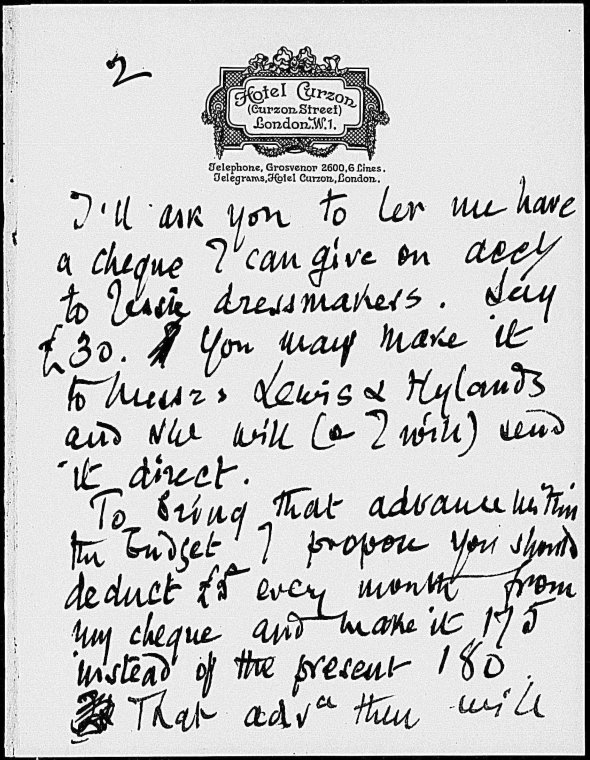 2
Hotel Curzon
(Curzon Street)
London. W.1.
Telephone, Grosvenor 2600, 6 Lines.
Telegrams, Hotel Curzon, London.
I'll ask you to let me have
a cheque I can give on acct
to Jessie dressmakers. Say
£30. You may make it
to Messrs Lewis & Hylands
and she will (or I will) send
it direct.
To bring that advance within
the budget I propose you should
deduct £5 every month from
my cheque and make it 175
instead of the present 180.
That advce then will